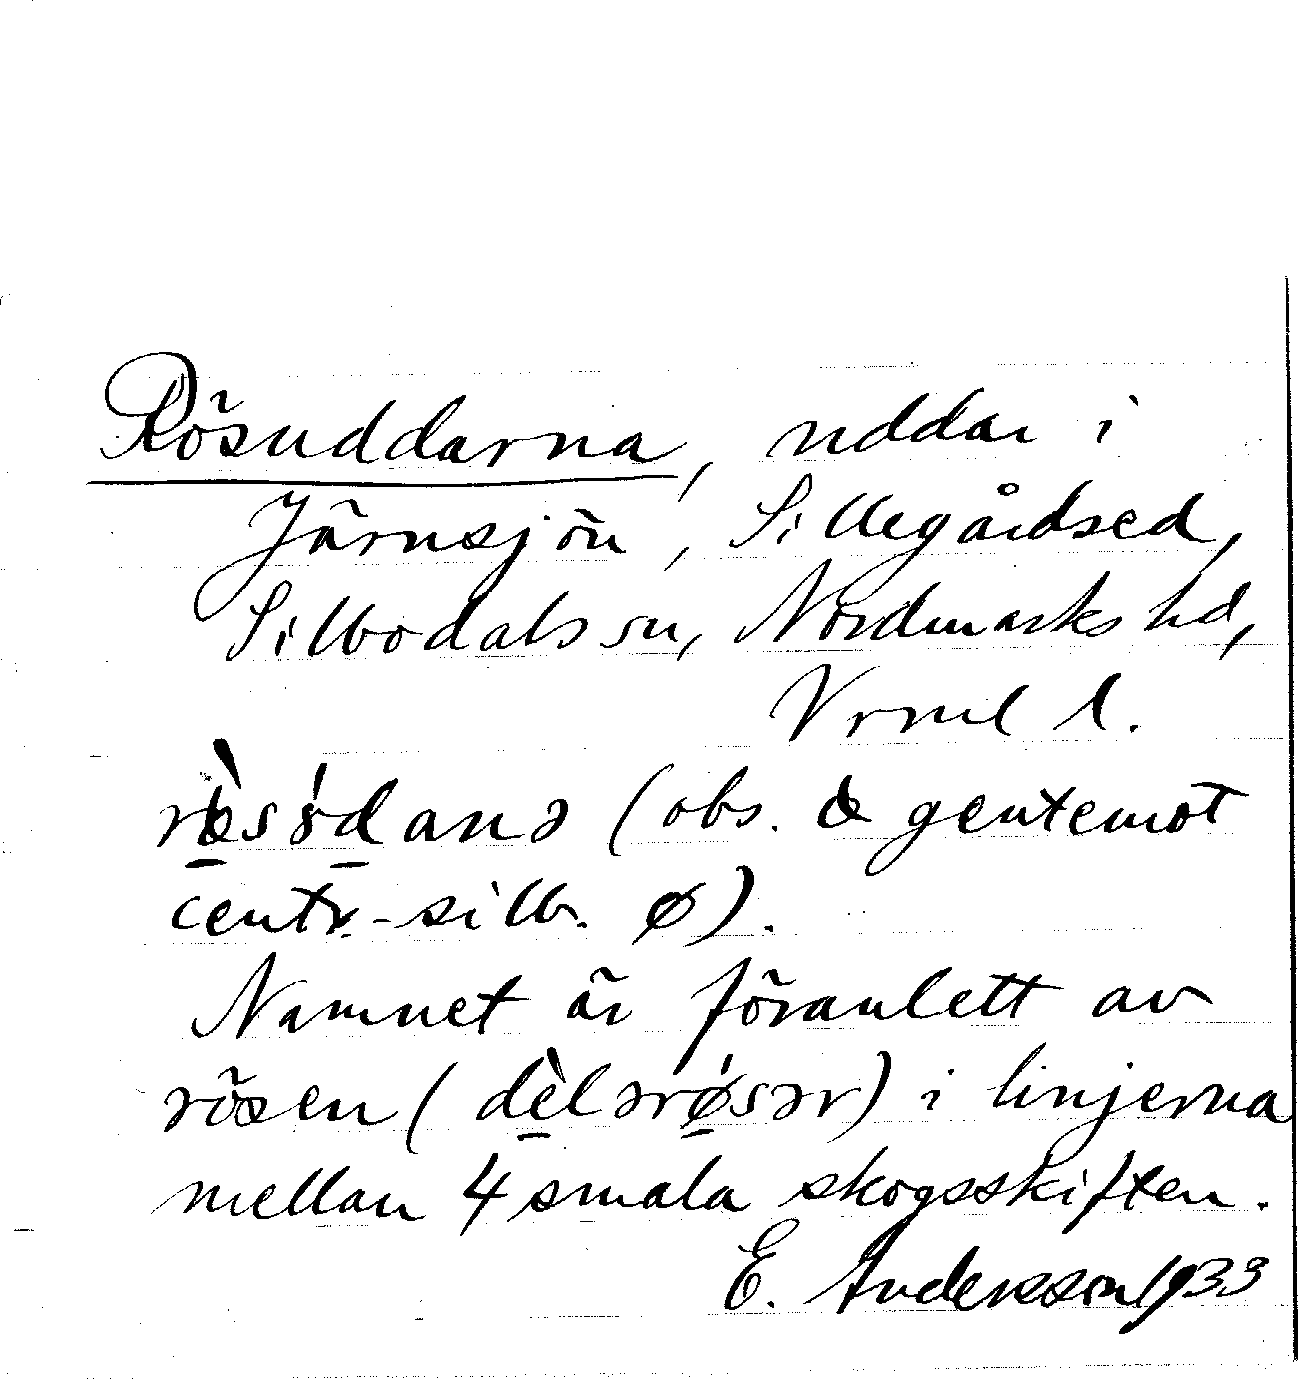 Rösuddarna, uddar i
Järnsjön, Sillegårdsed,
Silbodals sn, Nordmarks hd,
Vrml l.
(obs. gentemot
centr.-silb. ø).
Namnet är föranlett av
rösen (dèlərǿsər) i linjerna
mellan 4 smala skogsskiften.
E. Andersson 1933